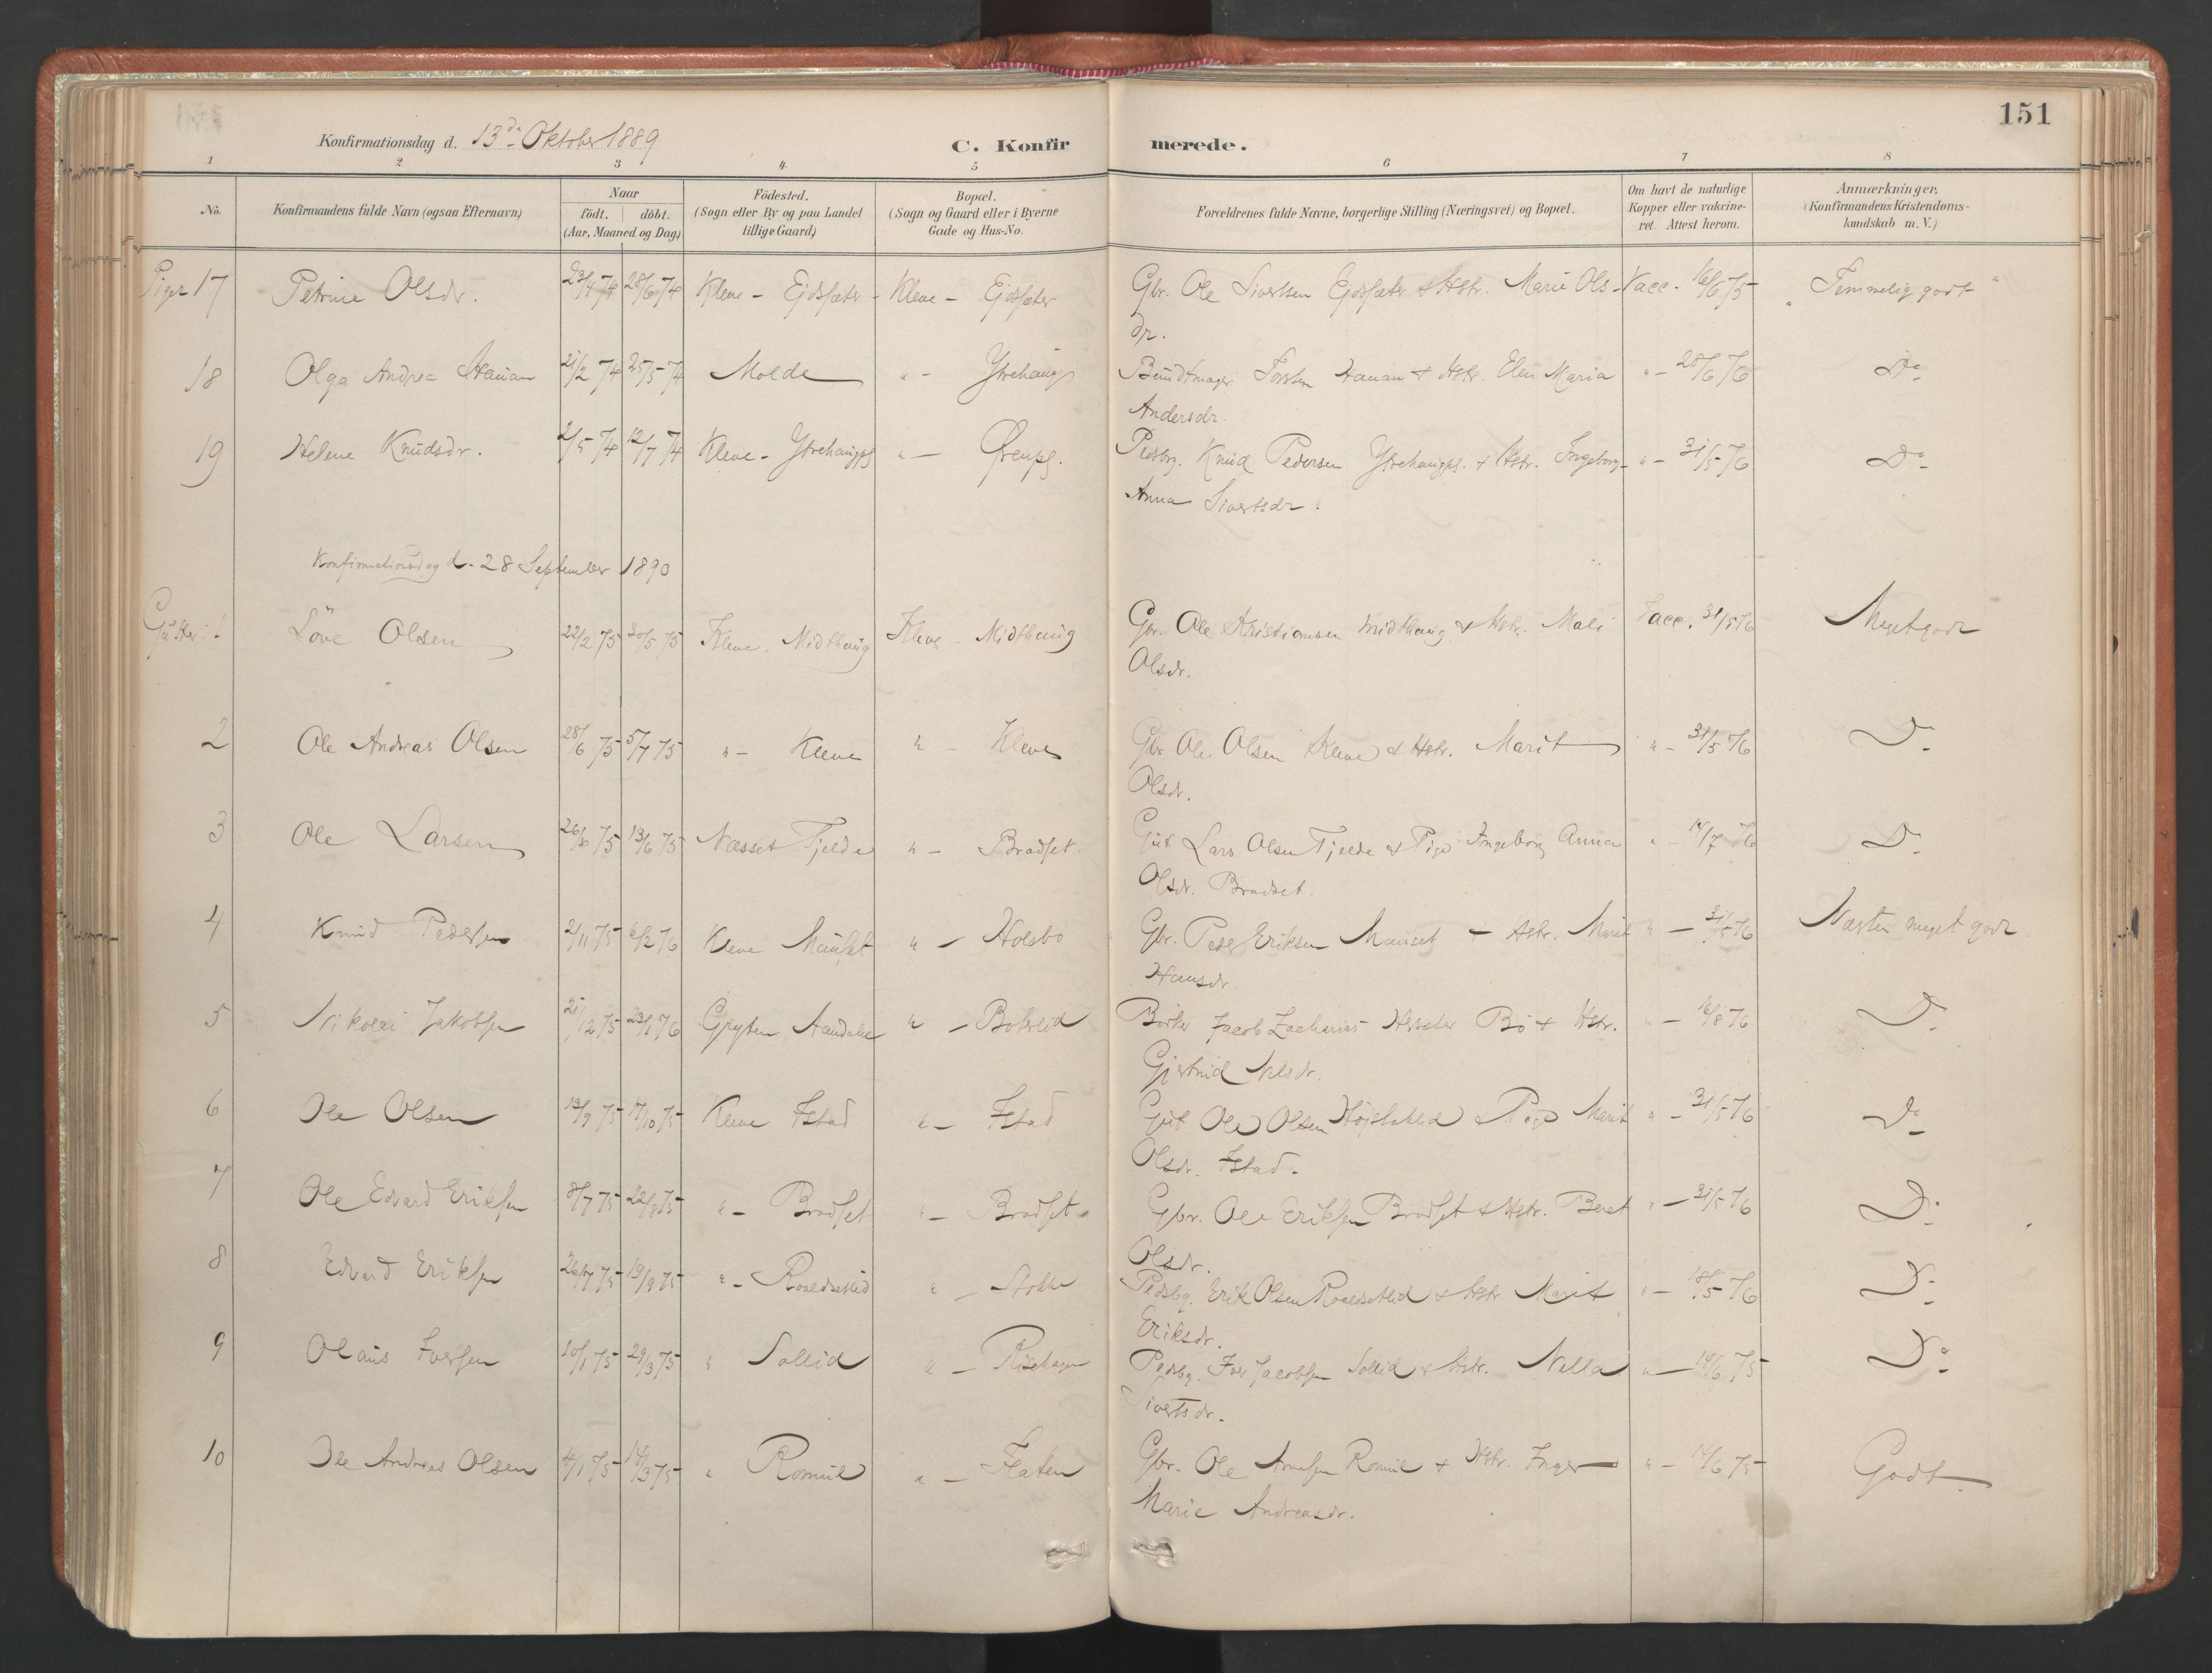 151
Konfirmationsdag d. 13de Oktober 1889
C. Konfirmerede.
1 2 3 4 5 6 7 8
No.
Konfirmandens fulde Navn (ogsaa Efternavn)
Naar
födt. döbt.
(Aar, Maaned og Dag)
Födested.
(Sogn eller By og paa Landet
tillige Gaard)
Bopæl.
(Sogn og Gaard eller i Byerne
Gade og Hus-No.
Forældrenes fulde Navne, borgerlige Stilling (Næringsvei) og Bopæl.
Om havt de naturlige
Kopper eller vakcine-
ret Attest herom.
Anmærkninger,
(Konfirmandens Kristendoms-
kundskab m. V.)
Piger 17 Petrine Olsdr. 23/4 74 28/6 74 Kleve - Ejdsæter Kleve - Ejdsæter Gbr. Ole Sivertsen Ejdsæter & Hstr. Marie Ols- Vacc. 16/6 75 "Temmelig godt"
dr.
18 Olga Andrea Hauan 21/2 74 25/5 74 Molde " - Ytrehaug Bundtmager Torsten Hauan & Hstr. Elen Maria " - 28/6 76 Do
Andersdr.
19 Helene Knudsdr. 2/5 74 12/7 74 Kleve - Ytrehaugpl " - Pedsbrg. Knud Pedersen Ytrehaugpl. & Hstr. Ingeborg- " - 31/5 76 Do
Anna Sivertsdr.
Konfirmationsdag d. 28 September 1890
Gutter: 1 Löve Olsen 22/2 75 30/5 75 Kleve - Midthaug Kleve - Midthaug Gbr. Ole Kristiansen Midthaug & Hstr. Mali Vacc. 31/5 76 Meget godt
Olsdr.
2 Ole Andreas Olsen 28/6 75 5/7 75 " - Kleve " - Kleve Gbr Ole Olsen Kleve & Hstr. Marit " - 31/5 76 Do
Olsdr.
3 Ole Larsen 75 13/6 75 Næsset Tjelde " - Bradset Gut Lars Olsen Tjelde & Pige Ingeborg Anna " - 76 Do
Olsdr. Bradset.
4 Knud Pedersen 2/11 75 6/2 76 Kleve Maulset " - Holsbo Gbr. Peder Eriksen & Hstr. Marit " - 31/5 76 Næsten meget godt
Hansdr.
5 Nikolai Jakobsen 21/12 75 23/1 76 Grytten " - Jacob Zacharias & Hstr. " - 16/8 76 Do
Gjertrud Nilsdr.
6 Ole Olsen 13/9 75 17/10 75 Kleve Istad " - Istad Gut Ole Olsen & Pige Marit " - 31/5 76 Do
Olsdr. Istad.
7 Ole Edvard Eriksen 8/7 75 22/8 75 " - Bradset " - Bradset Gbr. Ole Eriksen Bradset & Hstr. Beret " - 31/5 76 Do
Olsdr.
8 Edvard Eriksen 26/7 75 19/9 75 " - Roaldsetlid " - Pedsbg. Erik Olsen Roaldsetlid & Hstr Marit " - 18/5 76 Do
Eriksdr.
9 Olaus Iversen 20/1 75 29/3 75 " Sollid " - Risehagen Pedsbg. Iver Jacobsen Sollid & Hstr. Nilla " - 14/6 75 Do
Sivertsdr.
10 Ole Andreas Olsen 4/1 75 14/3 75 " Romul " - Flaten Gbr. Ole Arnesen Romul & Hstr. Inger " - 14/6 75 Godt.
Marie Andreasdr.